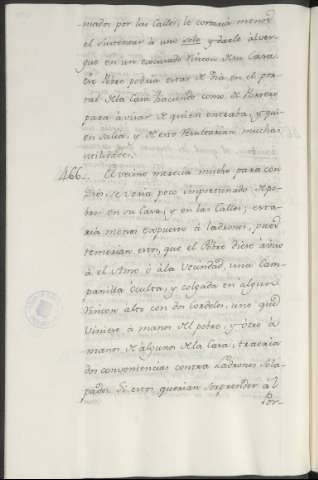 mados por las Calles, le costaria menos
el sustentar à uno solo y darle alver-
gue en un escusado Rincon de su Casa.
Este Pobre podria estar de Dia en el por-
tal de la Casa haciendo como de Portero
para avisar de quien entraba, y qui-
en salia, y de esto Resultarian muchas
utilidades.
466. El vecino merecia mucho para con
Dios, se veria poco importunado de Po-
bres en su Casa, y en las Calles; esta-
ria menos expuesto à ladrones, pues
temerian estos, que el Pobre diese aviso
à el Amo ò à la Vecindad, una Cam-
panilla oculta, y colgada en algun
Rincon alto con dos Cordeles, uno que
viniese à manos del pobre, y otro à
manos de alguno de la Casa, traeria
dos conveniencias contra Ladrones Sola-
pados. Si estos querian sorprender àl
Po-